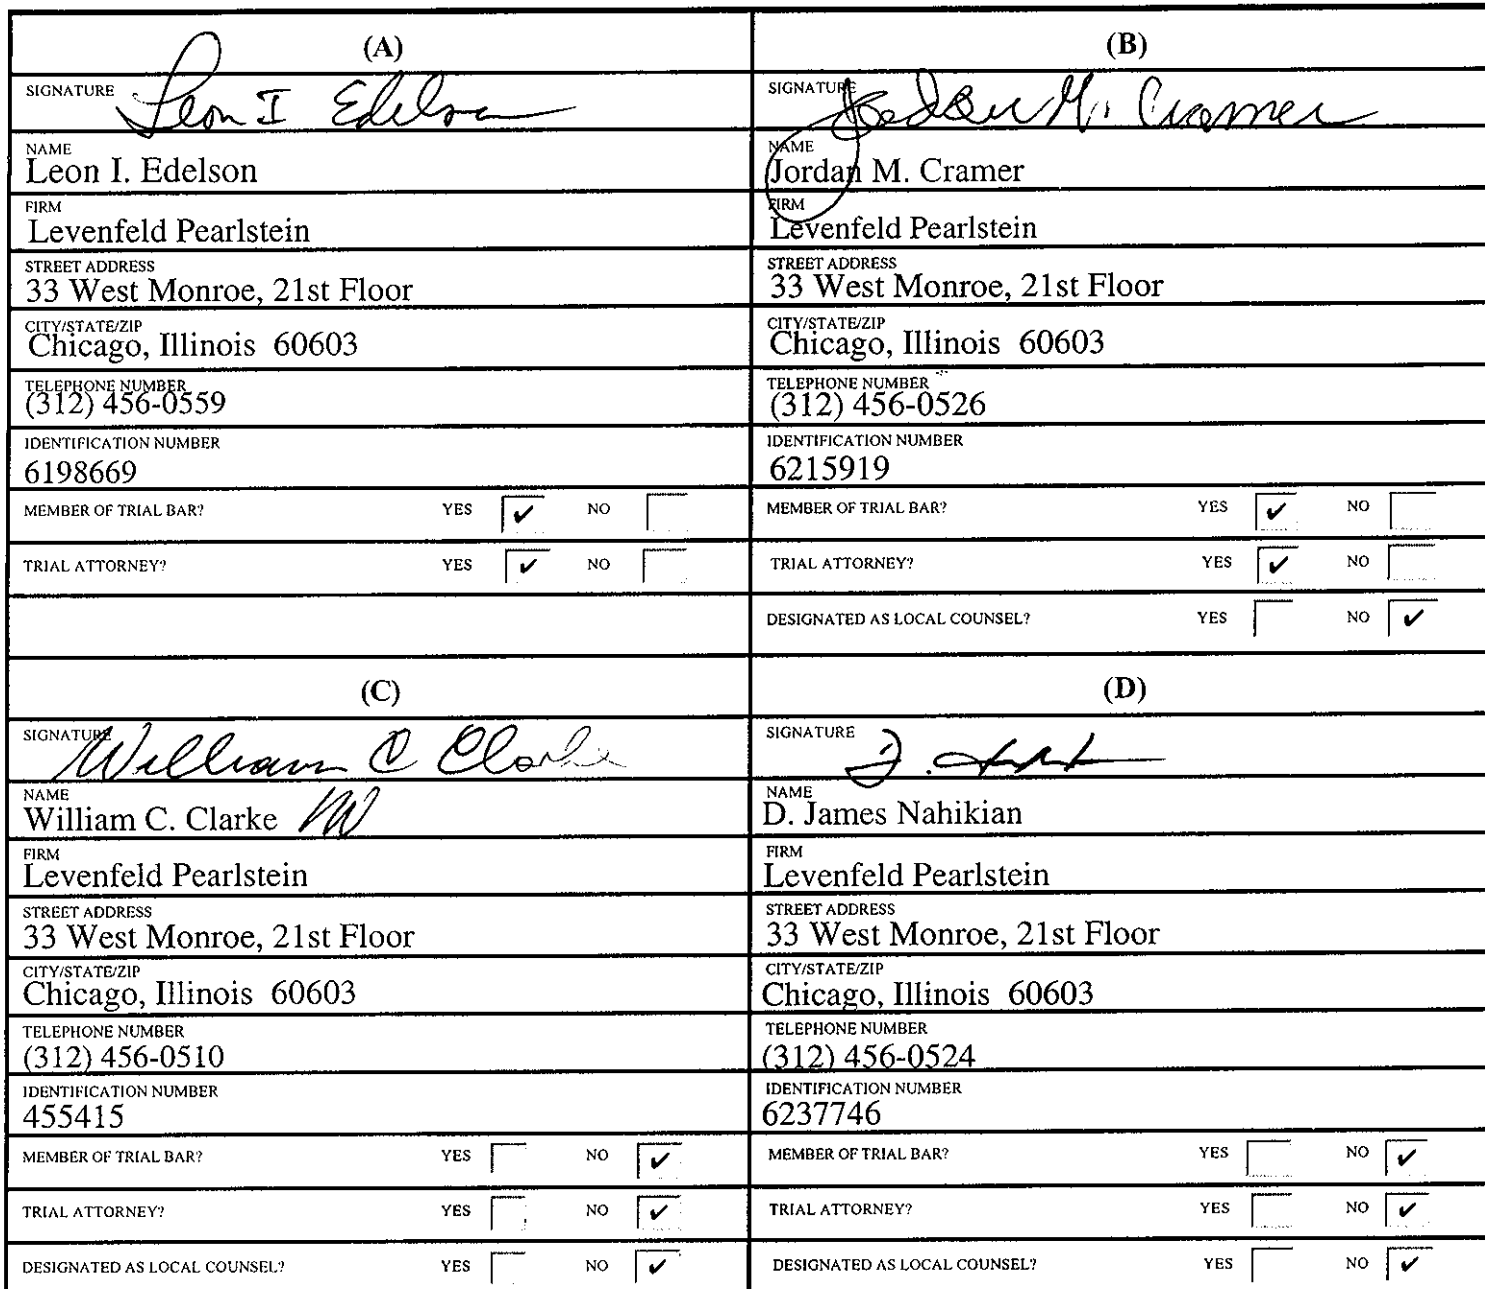 (A)
SIGNATURE Leon I Edelson
NAME
Leon I. Edelson
FIRM
Levenfeld Pearlstein
STREET ADDRESS
33 West Monroe, 21st Floor
CITY/STATE/ZIP
Chicago, Illinois 60603
TELEPHONE NUMBER
(312) 456-0559
IDENTIFICATION NUMBER
6198669
MEMBER OF TRIAL BAR? YES ✔ NO
TRIAL ATTORNEY? YES ✔ NO
(B)
SIGNATURE Jordan M. Cramer
NAME
Jordan M. Cramer
FIRM
Levenfeld Pearlstein
STREET ADDRESS
33 West Monroe, 21st Floor
CITY/STATE/ZIP
Chicago, Illinois 60603
TELEPHONE NUMBER
(312) 456-0526
IDENTIFICATION NUMBER
6215919
MEMBER OF TRIAL BAR? YES ✔ NO
TRIAL ATTORNEY? YES ✔ NO
DESIGNATED AS LOCAL COUNSEL? YES NO ✔
(C)
SIGNATURE William C Clarke
NAME
William C. Clarke
FIRM
Levenfeld Pearlstein
STREET ADDRESS
33 West Monroe, 21st Floor
CITY/STATE/ZIP
Chicago, Illinois 60603
TELEPHONE NUMBER
(312) 456-0510
IDENTIFICATION NUMBER
455415
MEMBER OF TRIAL BAR? YES NO ✔
TRIAL ATTORNEY? YES NO ✔
DESIGNATED AS LOCAL COUNSEL? YES NO ✔
(D)
SIGNATURE
NAME
D. James Nahikian
FIRM
Levenfeld Pearlstein
STREET ADDRESS
33 West Monroe, 21st Floor
CITY/STATE/ZIP
Chicago, Illinois 60603
TELEPHONE NUMBER
(312) 456-0524
IDENTIFICATION NUMBER
6237746
MEMBER OF TRIAL BAR? YES NO ✔
TRIAL ATTORNEY? YES NO ✔
DESIGNATED AS LOCAL COUNSEL? YES NO ✔